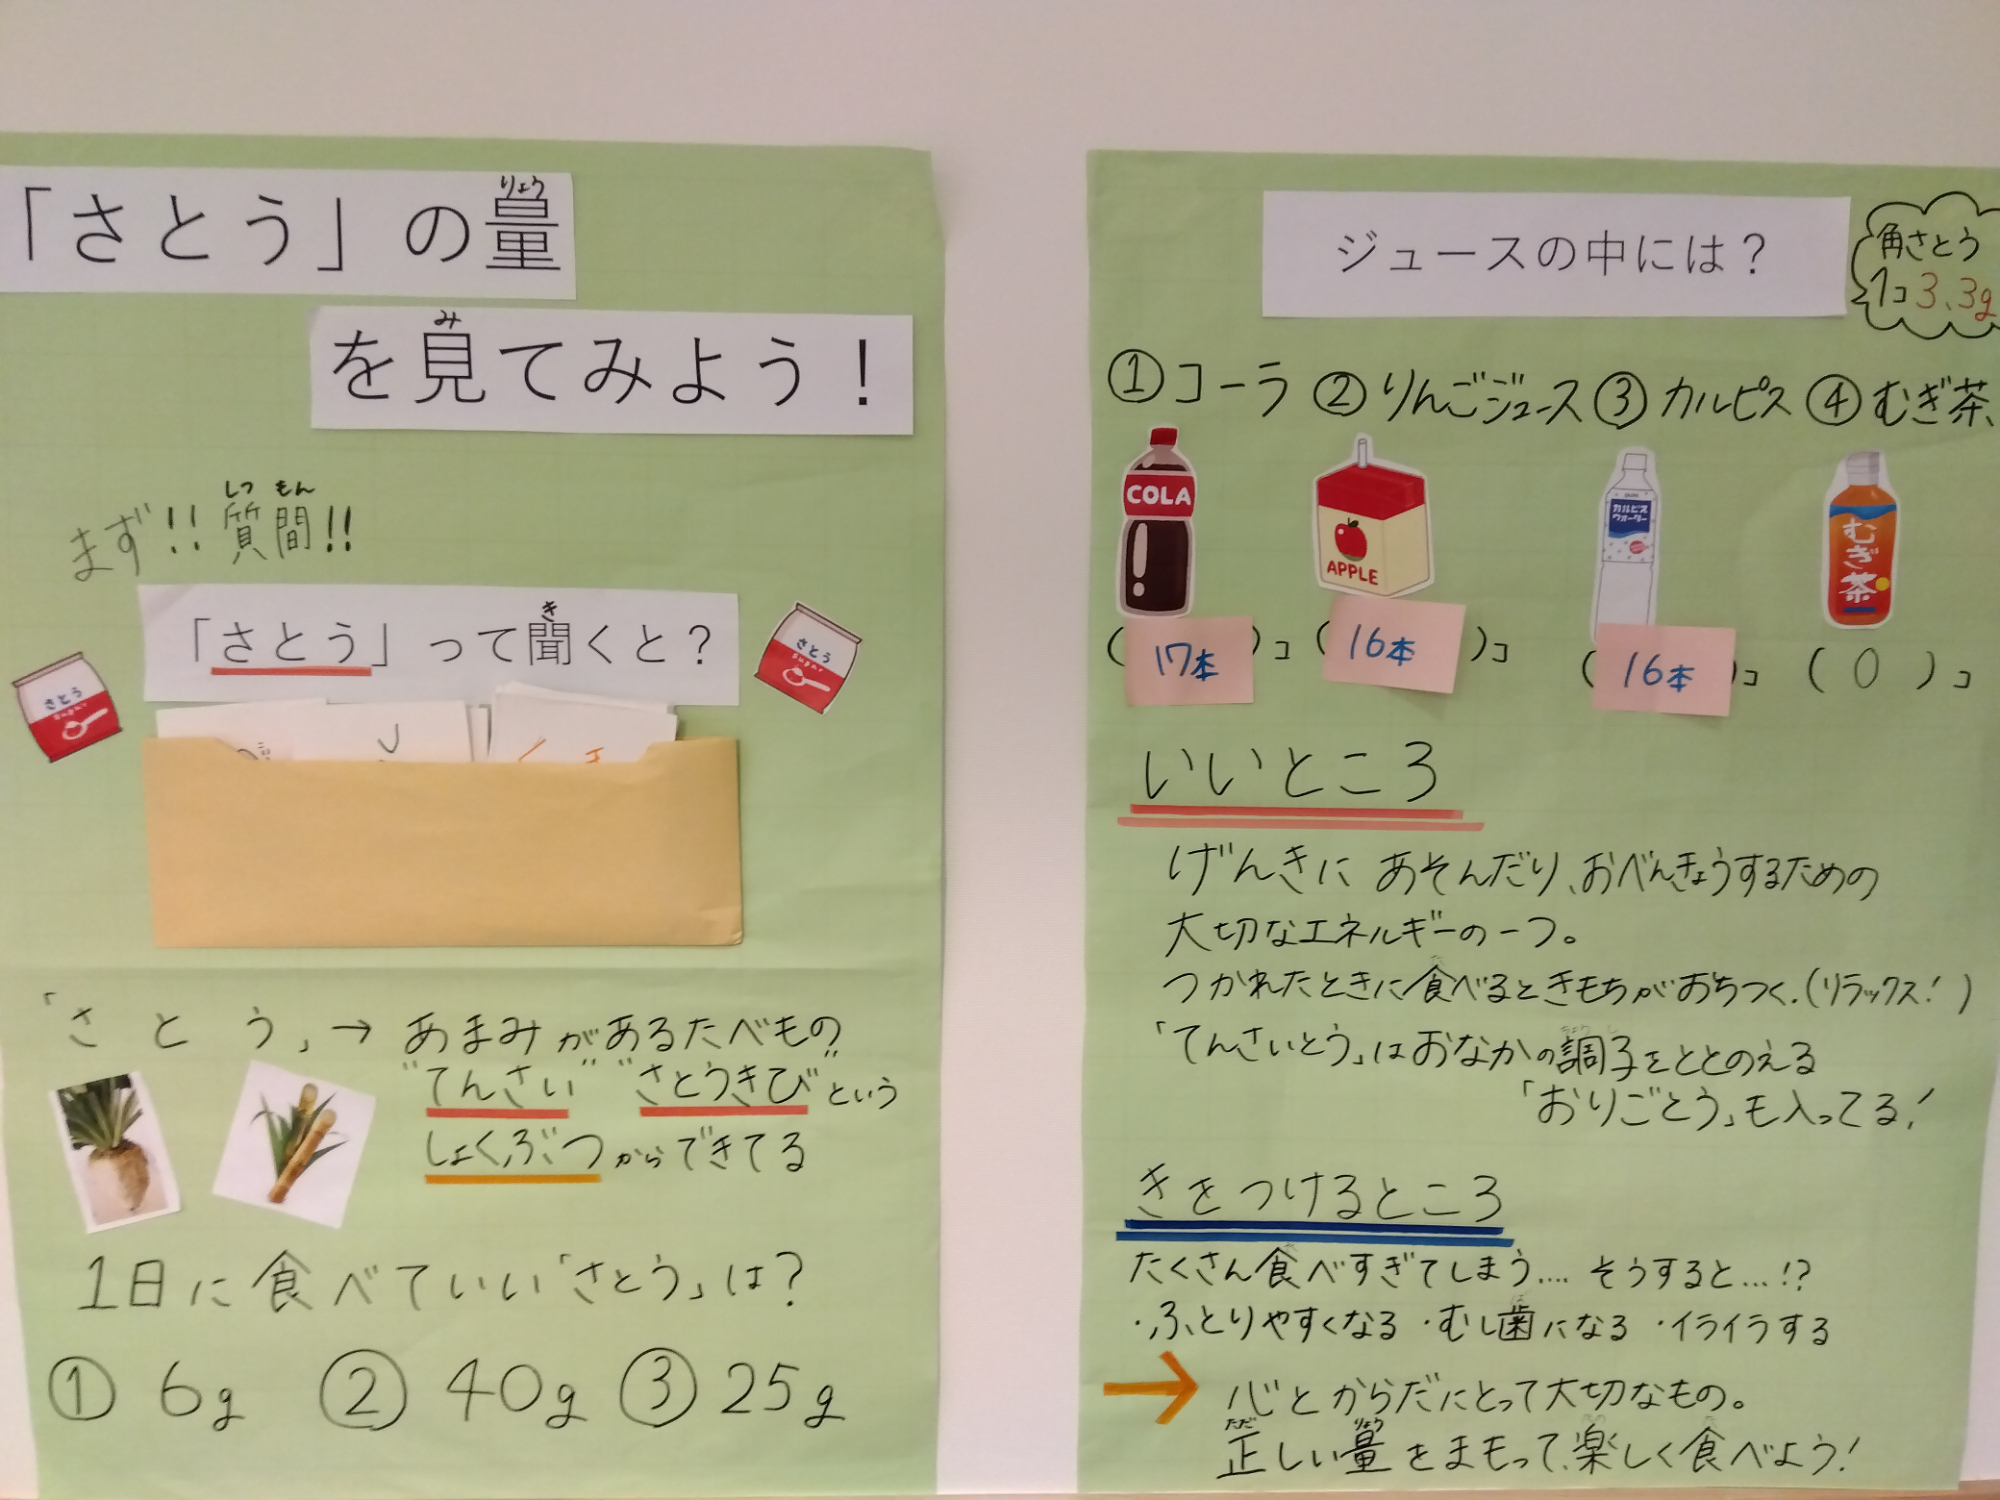 「さとう」の量
りょう
を見てみよう!
み
まず!!質問!!
しつもん
「さとう」って聞くと?
き
さとう
sugar
さとう
sugar
「さとう」→あまみがあるたべもの
"てんさい" "さとうきび"という
しょくぶつからできてる
1日に食べていい「さとう」は?
① 6g ② 40g ③ 25g
ジュースの中には?
角さとう
1コ3.3g
①コーラ ②りんごジュース ③カルピス ④むぎ茶
COLA
APPLE
カルピス
ウォーター
むぎ茶
(17本)コ (16本)コ (16本)コ (0)コ
いいところ
げんきに あそんだり、おべんきょうするための
大切なエネルギーの一つ。
つかれたときに食べるときもちがおちつく.(リラックス!)
「てんさいとう」はおなかの調子をととのえる
ちょうし
「おりごとう」も入ってる!
きをつけるところ
たくさん食べすぎてしまう.... そうすると...!?
・ふとりやすくなる ・むし歯になる ・イライラする
→ 心とからだにとって大切なもの。
ただ りょう
正しい量をまもって、楽しく食べよう!